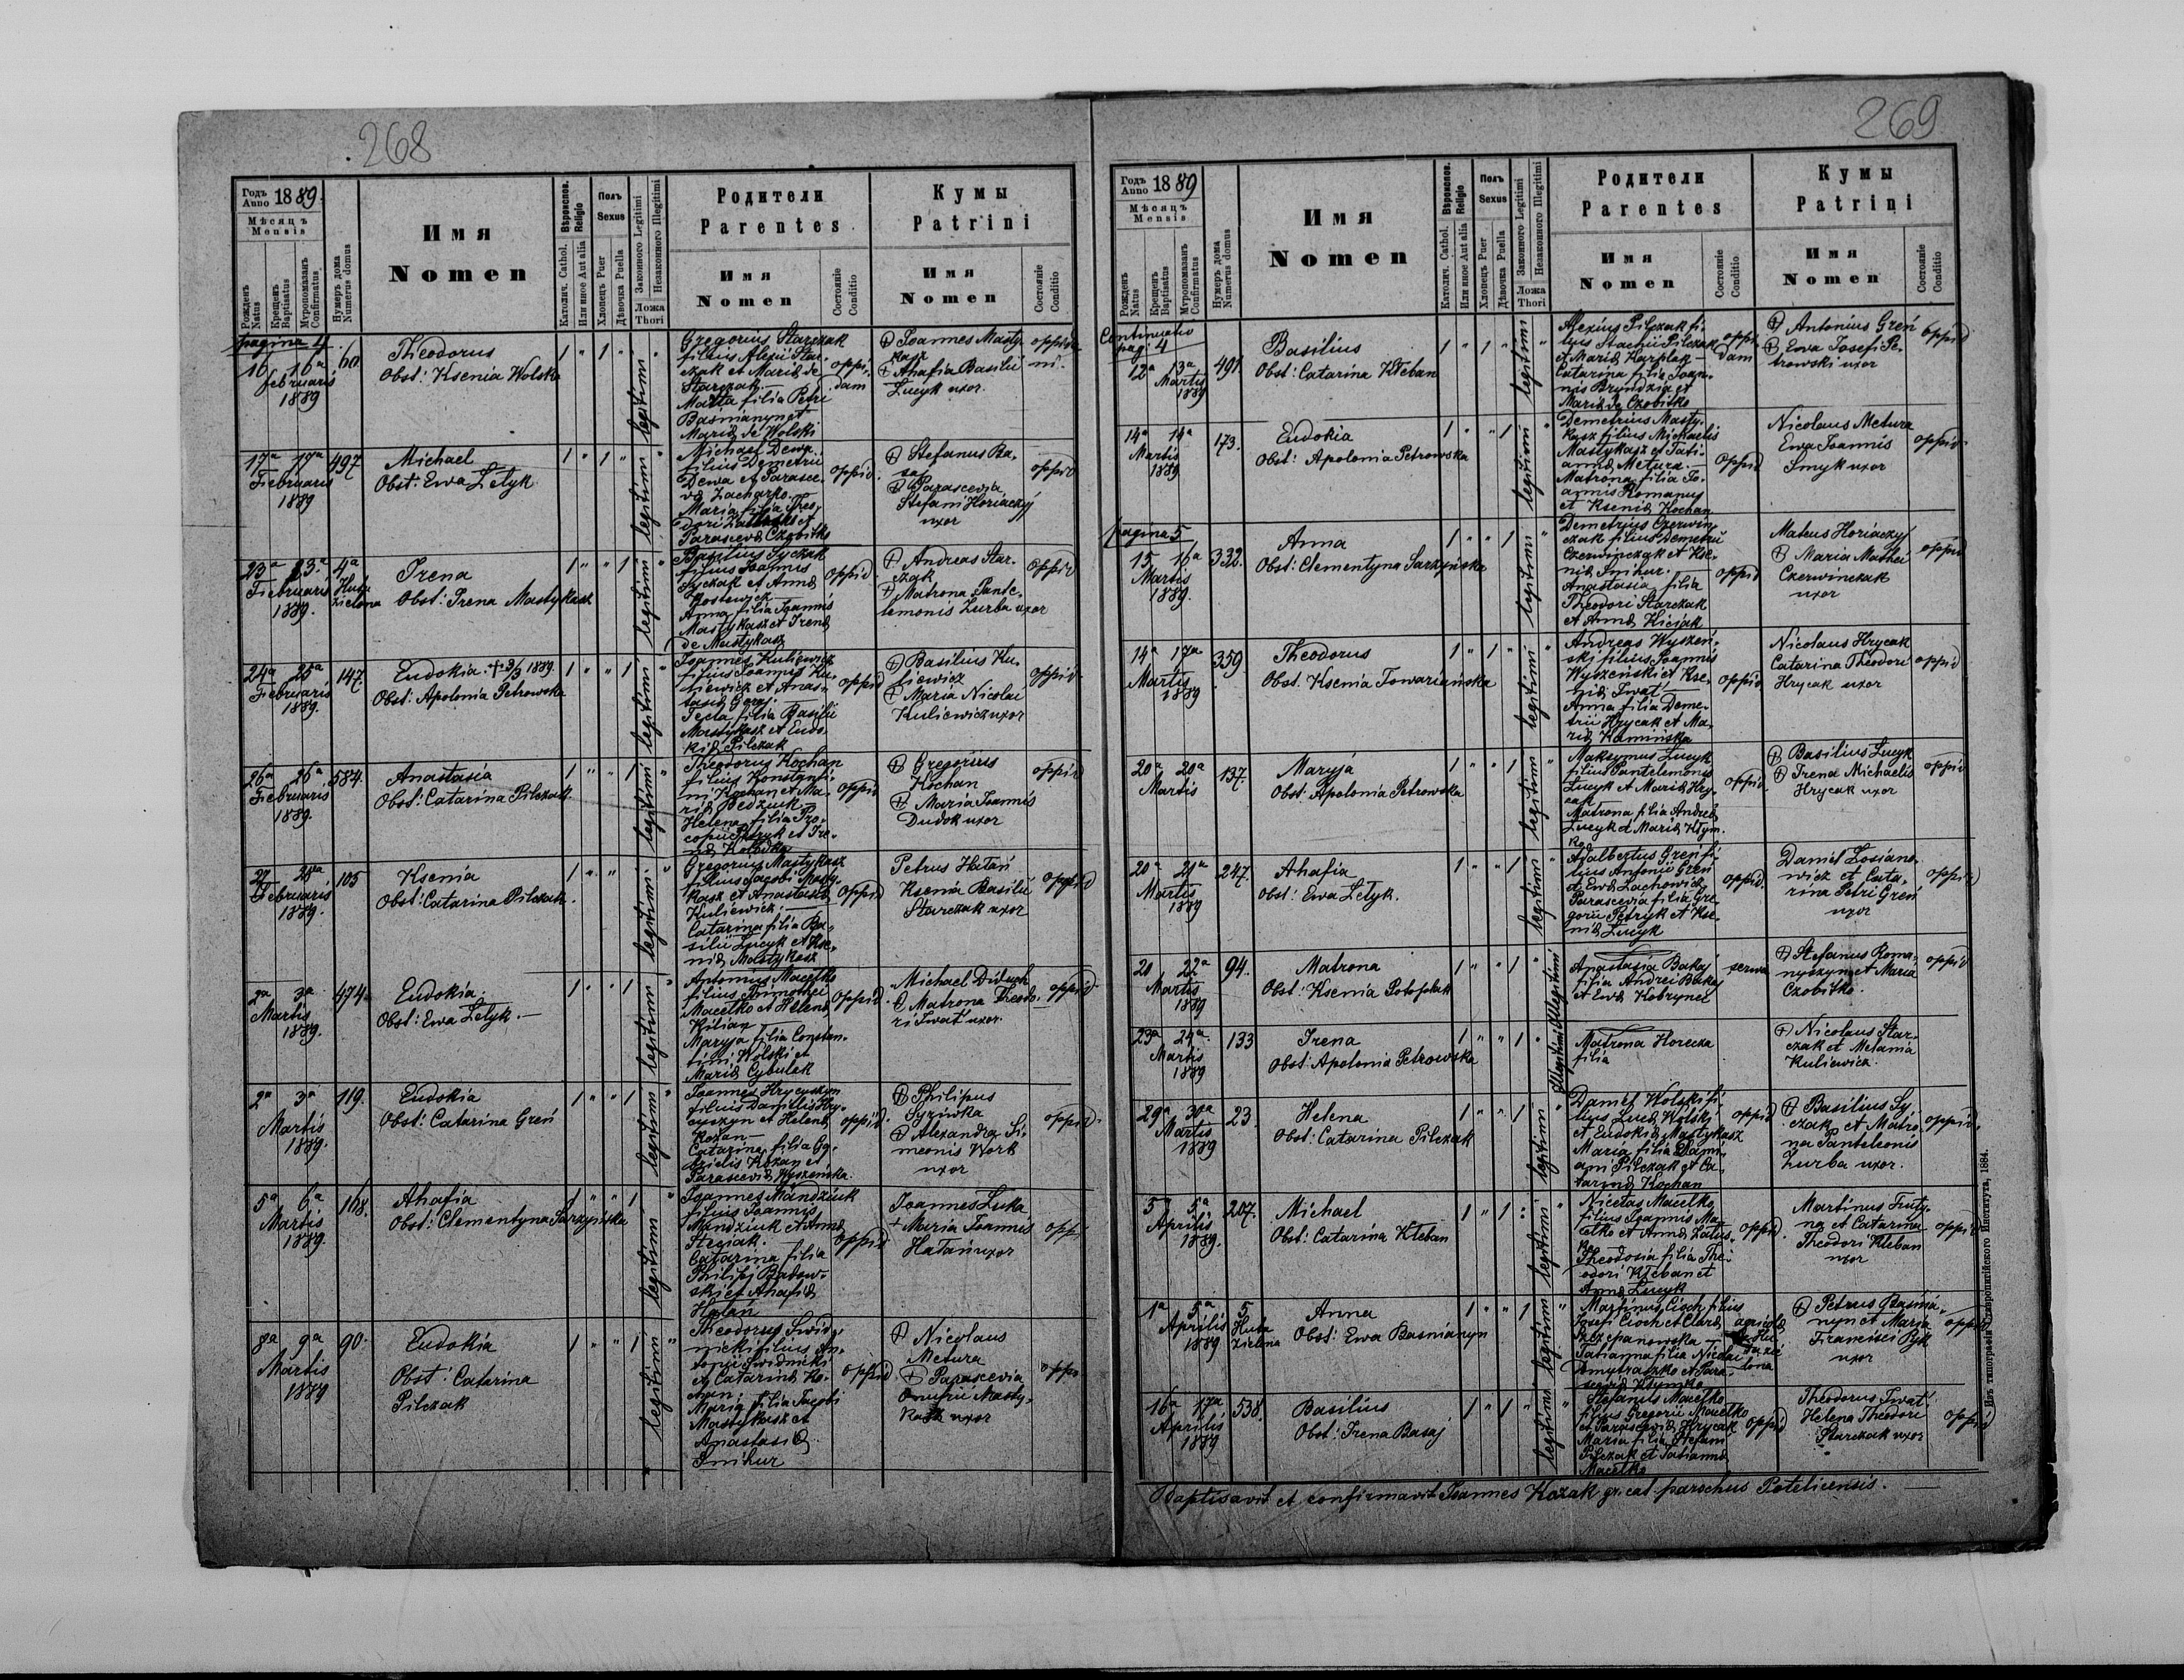 268
Годъ Anno 1889.
Мѣсяцъ
Mensis
Рожденъ Natus
Крещенъ Baptisatus
Мѵропомазанъ Confirmatus
Нумеръ дома Numerus domus
Имя
Nomen
Вѣроисповѣд. Religio
Католич. Cathol.
Или иное Aut alia
Полъ Sexus
Хлопецъ Puer
Дѣвочка Puella
Законного Legitimi
Незаконного Illegitimi
Ложа Thori
Родители
Parentes
Имя
Nomen
Состояніе Conditio
Кумы
Patrini
Имя
Nomen
Состояніе Conditio
pagina 4
16 16a 60
Februaris
1889
Theodorus
Obst: Ksenia Wolska
1 " 1 " legitimi "
Gregorius Starczak
filius Alexii Star-
czak et Mariæ de
Starczak. —
Marta filia Petri
Baśnianyn et
Mariæ de Wolski
oppi-
dam
Joannes Masty-
kasz
Ahafia Basilii
Lucyk uxor.
oppida-
ni.
17a 17a 497
Februaris
1889
Michael
Obst: Ewa Letyk
1 " 1 " legitimi "
Michael Dewa
filius Demetrii
Dewa et Parasce-
væ Zacharko. —
Maria filia Theo-
dori
Parascevæ Czobitko
oppid.
Stefanus Ba-
saj
Parascevia
Stefani Horiaczyj
uxor
oppid
23a 23a 4a
Februaris Huta
1889. Zielona
Irena
Obst: Irena Mastykasz
1 " " 1 legitimi "
Basilius Syczak
filius Joannis
Syczak et Annæ
Kostewicz —
Anna filia Joannis
Mastykasz et Irenæ
de Mastykasz
oppid
Andreas Star-
czak
Matrona Pante-
lemonis Zurba uxor
oppid
24a 25a 147.
Februaris
1889.
Eudokia. + 3/3 1889.
Obst: Apolonia Petrowska
1 " " 1 legitimi "
Joannes Kuliewicz
filius Joannis Ku-
liewicz et Anas-
tasiæ Goraj. —
Tecla filia Basilii
Mastykasz et Eudo-
kiæ Pilczak
oppid
Basilius Ku-
liewicz
Maria Nicolai
Kuliewicz uxor
oppid
26a 26a 584.
Februaris
1889.
Anastasia
Obst: Catarina Pilczak
1 " " 1 legitimi "
Theodorus Kochan
filius Konstanti-
ni Kochan et Ma-
riæ Dedziuk —
Helena filia Pro-
copii Petryk et Ire-
næ
oppid
Gregorius
Kochan
Maria Joannis
Dudok uxor
oppid
27 28a 105
Februaris
1889.
Ksenia
Obst: Catarina Pilczak.
1 " " legitimi "
Gregorius Mastykasz
filius Jacobi Masty-
kasz et Anastasiæ
Kuliewicz. —
Catarina filia Ba-
silii Lucyk et Kse-
niæ Mastykasz
oppid
Petrus Hatań
Ksenia Basilii
Starczak uxor
oppid
2a 3a 474.
Martis
1889.
Eudokia.
Obst: Ewa Letyk. —
1 " " 1 legitimi "
Antonius Macełko
filius Timothei
Macełko et Helenæ
Kilian —
Maryja filia Constan-
tini Wolski et
Mariæ Cybulak
oppid.
Michael
Matrona Theodo-
ri Iwat' uxor.
oppid.
2a 3a 119.
Martis
1889.
Eudokia
Obst: Catarina Greń
1 " " 1 legitimi "
Joannes Hrycyszyn
filius Danilis Hry-
cyszyn et Helenæ
Kozan —
Catarina filia Ga-
brielis Kozan et
Parascevæ Wyszeńska.
oppid.
Philipus
Syziwka
Alexandra Si-
meonis Work
uxor
oppid.
5a 6a 168.
Martis
1889.
Ahafia
Obst: Clementyna Sarzyńska
1 " " 1 legitimi "
Joannes Mandziuk
filius Joannis
Mandziuk et Annæ
Steciak.
Catarina filia
Philipi Badow-
ski et Ahafiæ
Hatań
oppid
Joannes Luka
Maria Joannes
Hatań uxor
opp.
8a 9a 90.
Martis
1889
Eudokia
Obst: Catarina
Pilczak
1 " " 1 legitimi "
Theodorus Swid-
nicki filius An-
tonii Swidnicki
et Catarinæ Ko-
chan;
Maria filia Jacobi
Mastykasz et
Anastasiæ
Snihur
oppid
Nicolaus
Metura
Parascevia
Onufrii Masty-
kasz uxor
opp.
269
Годъ Anno 1889
Мѣсяцъ
Mensis
Рожденъ Natus
Крещенъ Baptisatus
Мѵропомазанъ Confirmatus
Нумеръ дома Numerus domus
Имя
Nomen
Вѣроисповѣд. Religio
Католич. Cathol.
Или иное Aut alia
Полъ Sexus
Хлопецъ Puer
Дѣвочка Puella
Законного Legitimi
Незаконного Illegitimi
Ложа Thori
Родители
Parentes
Имя
Nomen
Состояніе Conditio
Кумы
Patrini
Имя
Nomen
Состояніе Conditio
Continuatio
pag: 4
12a 13a 491.
Martis
1889
Basilius
Obst: Catarina Kłeban
1 " 1 " legitimi "
Alexius Pilczak fi-
lius Stachii Pilczak
et Mariæ Karplak —
Catarina filia Joan-
nis Bryndzia et
Mariæ de Czobitko
oppi-
dam
Antonius Greń
Ewa Josefi Pe-
trowski uxor
oppid
14a 14a 173.
Martis
1889
Eudokia
Obst: Apolonia Petrowska
1 " " 1 legitimi "
Demetrius Masty-
kasz filius Michaelis
Mastykasz et Tati-
annæ Metura. —
Matrona filia Jo-
annis Romanus
et Kseniæ Kochan
oppid
Nicolaus Metura
Ewa Joannis
Smyk uxor
oppid.
pagina 5
15 16a 332.
Martis
1889.
Anna
Obst: Clementyna Sarzyńska
1 " " 1 legitimi "
Demetrius Czerwin-
czak filius Demetrii
Czerwinczak et Kse-
niæ Snihur. —
Anastasia filia
Theodori Starczak
et Annæ Kiciak
oppid
Mateus Horiaczyj
Maria Mathei
Czerwinczak
uxor
oppid
14a 17a 359
Martis
1889
Theodorus
Obst. Ksenia Towariańska
1 " 1 " legitimi "
Andreas Wyszeń-
ski filius Joannis
Wyszeński et Kse-
niæ Iwat' —
Anna filia Deme-
trii Hrycak et Ma-
riæ Kamińska
oppid
Nicolaus Hrycak
Catarina Theodori
Hrycak uxor
oppid
20a 20a 137.
Martis
Maryja
Obst: Apolonia Petrowska
1 " " 1 legitimi "
Maksymus Lucyk
filius Pantelemonis
Lucyk et Mariæ Hry-
cak —
Matrona filia Andreæ
Lucyk et Mariæ Kłym-
ko
oppid
Basilius Lucyk
Irena Michaelis
Hrycak uxor
oppid
20a 21a 247.
Martis
1889
Ahafia
Obst: Ewa Letyk.
1 " " 1 legitimi "
Adalbertus Greń fi-
lius Antonii Greń
et Ewæ Lachowicz
Parascevia filia Gre-
gorii Petryk et Kse-
niæ Lucyk
oppid.
Daniel Losiano-
wicz et Cata-
rina Petri Greń
uxor
oppid
20 22a 94.
Martis
1889
Matrona
Obst: Ksenia
1 " " 1 " Illegitimi
Anastasia Bakaj
filia Andrei Bakaj
et Ewæ Kobryneć
serva
Stefanus Roma-
nyszyn et Maria
Czobitko.
oppid
23a 24a 133
Martis
1889
Irena
Obst: Apolonia Petrowska
1 " " 1 " Illegitimi
Matrona Horecka
filia
Nicolaus Star-
czak et Melania
Kuliewicz
29a 30a 23.
Martis
1889
Helena
Obst: Catarina Pilczak
1 " " 1 legitimi "
Daniel Wolski fi-
lius Lucæ Wolski
et Eudokiæ Mastykasz
Maria filia Dami-
ani Pilczak et Ca-
tarinæ Kochan
oppid
Basilius Sy-
czak et Matro-
na Panteleonis
Zurba uxor.
oppid.
5a 5a 207.
Aprilis
1889.
Michael
Obst: Catarina Kłeban
1 " 1 " legitimi "
Nicetas Macełko
filius Joannis Ma-
cełko et Annæ Łatus-
ko
Theodosia filia The-
odori Kłeban et
Annæ Lucyk
oppid.
Martinus Fruty-
na et Catarina
Theodori Kłeban
uxor
oppid
1a 5a 5
Aprilis Huta
1889 Zielona
Anna
Obst: Ewa Baśnianyn
1 " " 1 legitimi "
Martinus Cioch filius
Josefi Cioch et Claræ
Szczepanowska —
Tatianna filia Nicolai
Dmytraszko et Para-
sceviæ Kłymko
agricola
Petrus Baśnia-
nyn et Maria
Francisci Pyk
uxor
oppid
16a 17a 538.
Aprilis
1889
Basilius
Obst: Irena Basaj
1 " 1 " legitimi "
Stefanus Macełko
filius Gregorii Macełko
et Parasceviæ Hrycak
Maria filia Stefani
Pilczak et Tatiannæ
Macełko
oppid
Theodorus Iwat'
Helena Theodori
Starczak uxor
oppid
Baptisavit et confirmavit Joannes Kozak gr. cat. parochus Potelicensis. —
Изъ типографіи Ставропигійского Института, 1884.